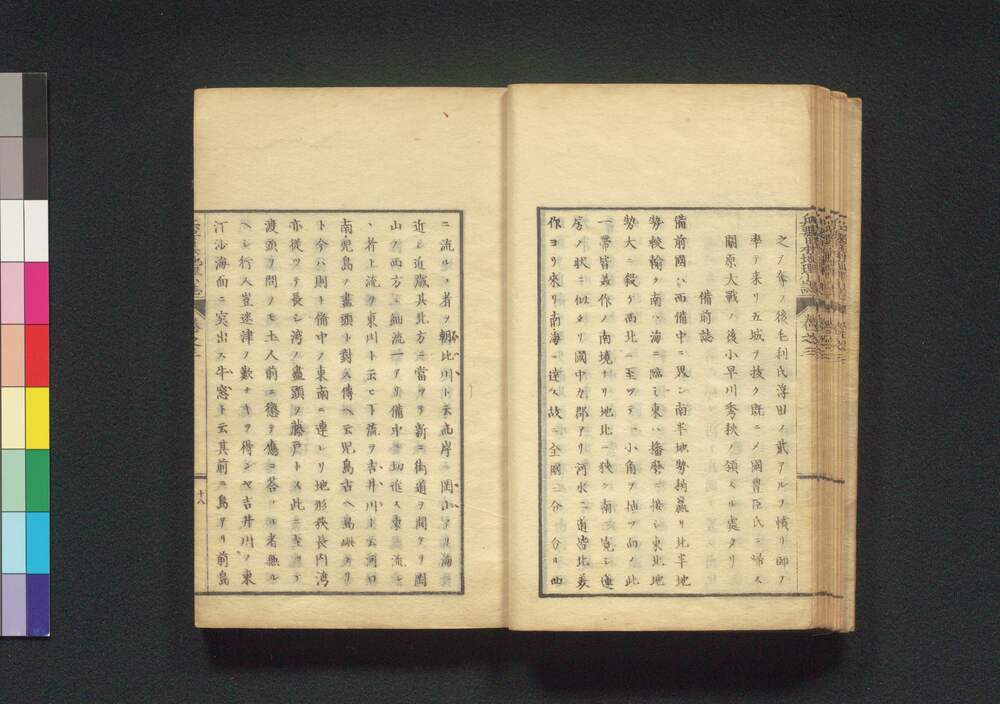 之ヲ奪ノ後毛利氏浮田ノ貳アルヲ憤リ師ヲ
率テ来リ五城ヲ抜ク既ニノ國豊臣氏ニ歸ス
關原大戰ノ後小早川秀秋ノ領スル處タリ
備前誌
備前國ハ西備中ニ異ン南半地勢稍贏リ北半地
勢較輸ク南ハ海ニ臨ミ東ハ播磨ニ接シ東北地
勢大ニ殺ケ西北ニ至ツテ一小角ヲ抽ツ而ノ此
一帶皆美作ノ南境ナリ地北ハ狹ク南ハ寛シ蓮
房ノ状ニ似タリ國中八郡アリ河水二道皆北美
作ヨリ來リ南海ニ達ス故ニ全國三分ニ分ル西
ニ流ルヽ者ヲ朝比川ト云西岸ニ岡山アリ海ニ
近シ近歳其北方ニ當ツテ新ニ街道ヲ開ケリ國
山ノ西方ニ細流一アリ備中ニ切近ス東ニ流ル
ヽ者上流ヲ東川ト云ヒ下流ヲ吉井川ト云河口
南児島ノ盡頭ト對ス傳ヘ云児島古ヘ島嶼タリ
ト今ハ則ト備中ノ東南ニ連レリ地形狹長内湾
亦從ツテ長シ湾ノ盡頭ヲ藤戸トス此ニ至ツテ
渡頭ヲ問ノモ土人前ニ懲テ應ニ答フル者無ル
ヘシ行人豈迷津ノ歎ナキヲ得ンヤ吉井川ノ東
汀沙海面ニ突出ス牛窓ト云其前ニ島アリ前島
十八